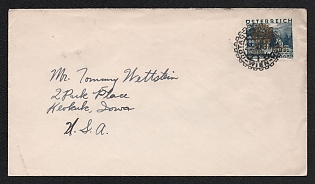 ÖSTERREICH
Mr. Tommy Wettstein
2 Park Place
Keokuk, Iowa
U.S.A.